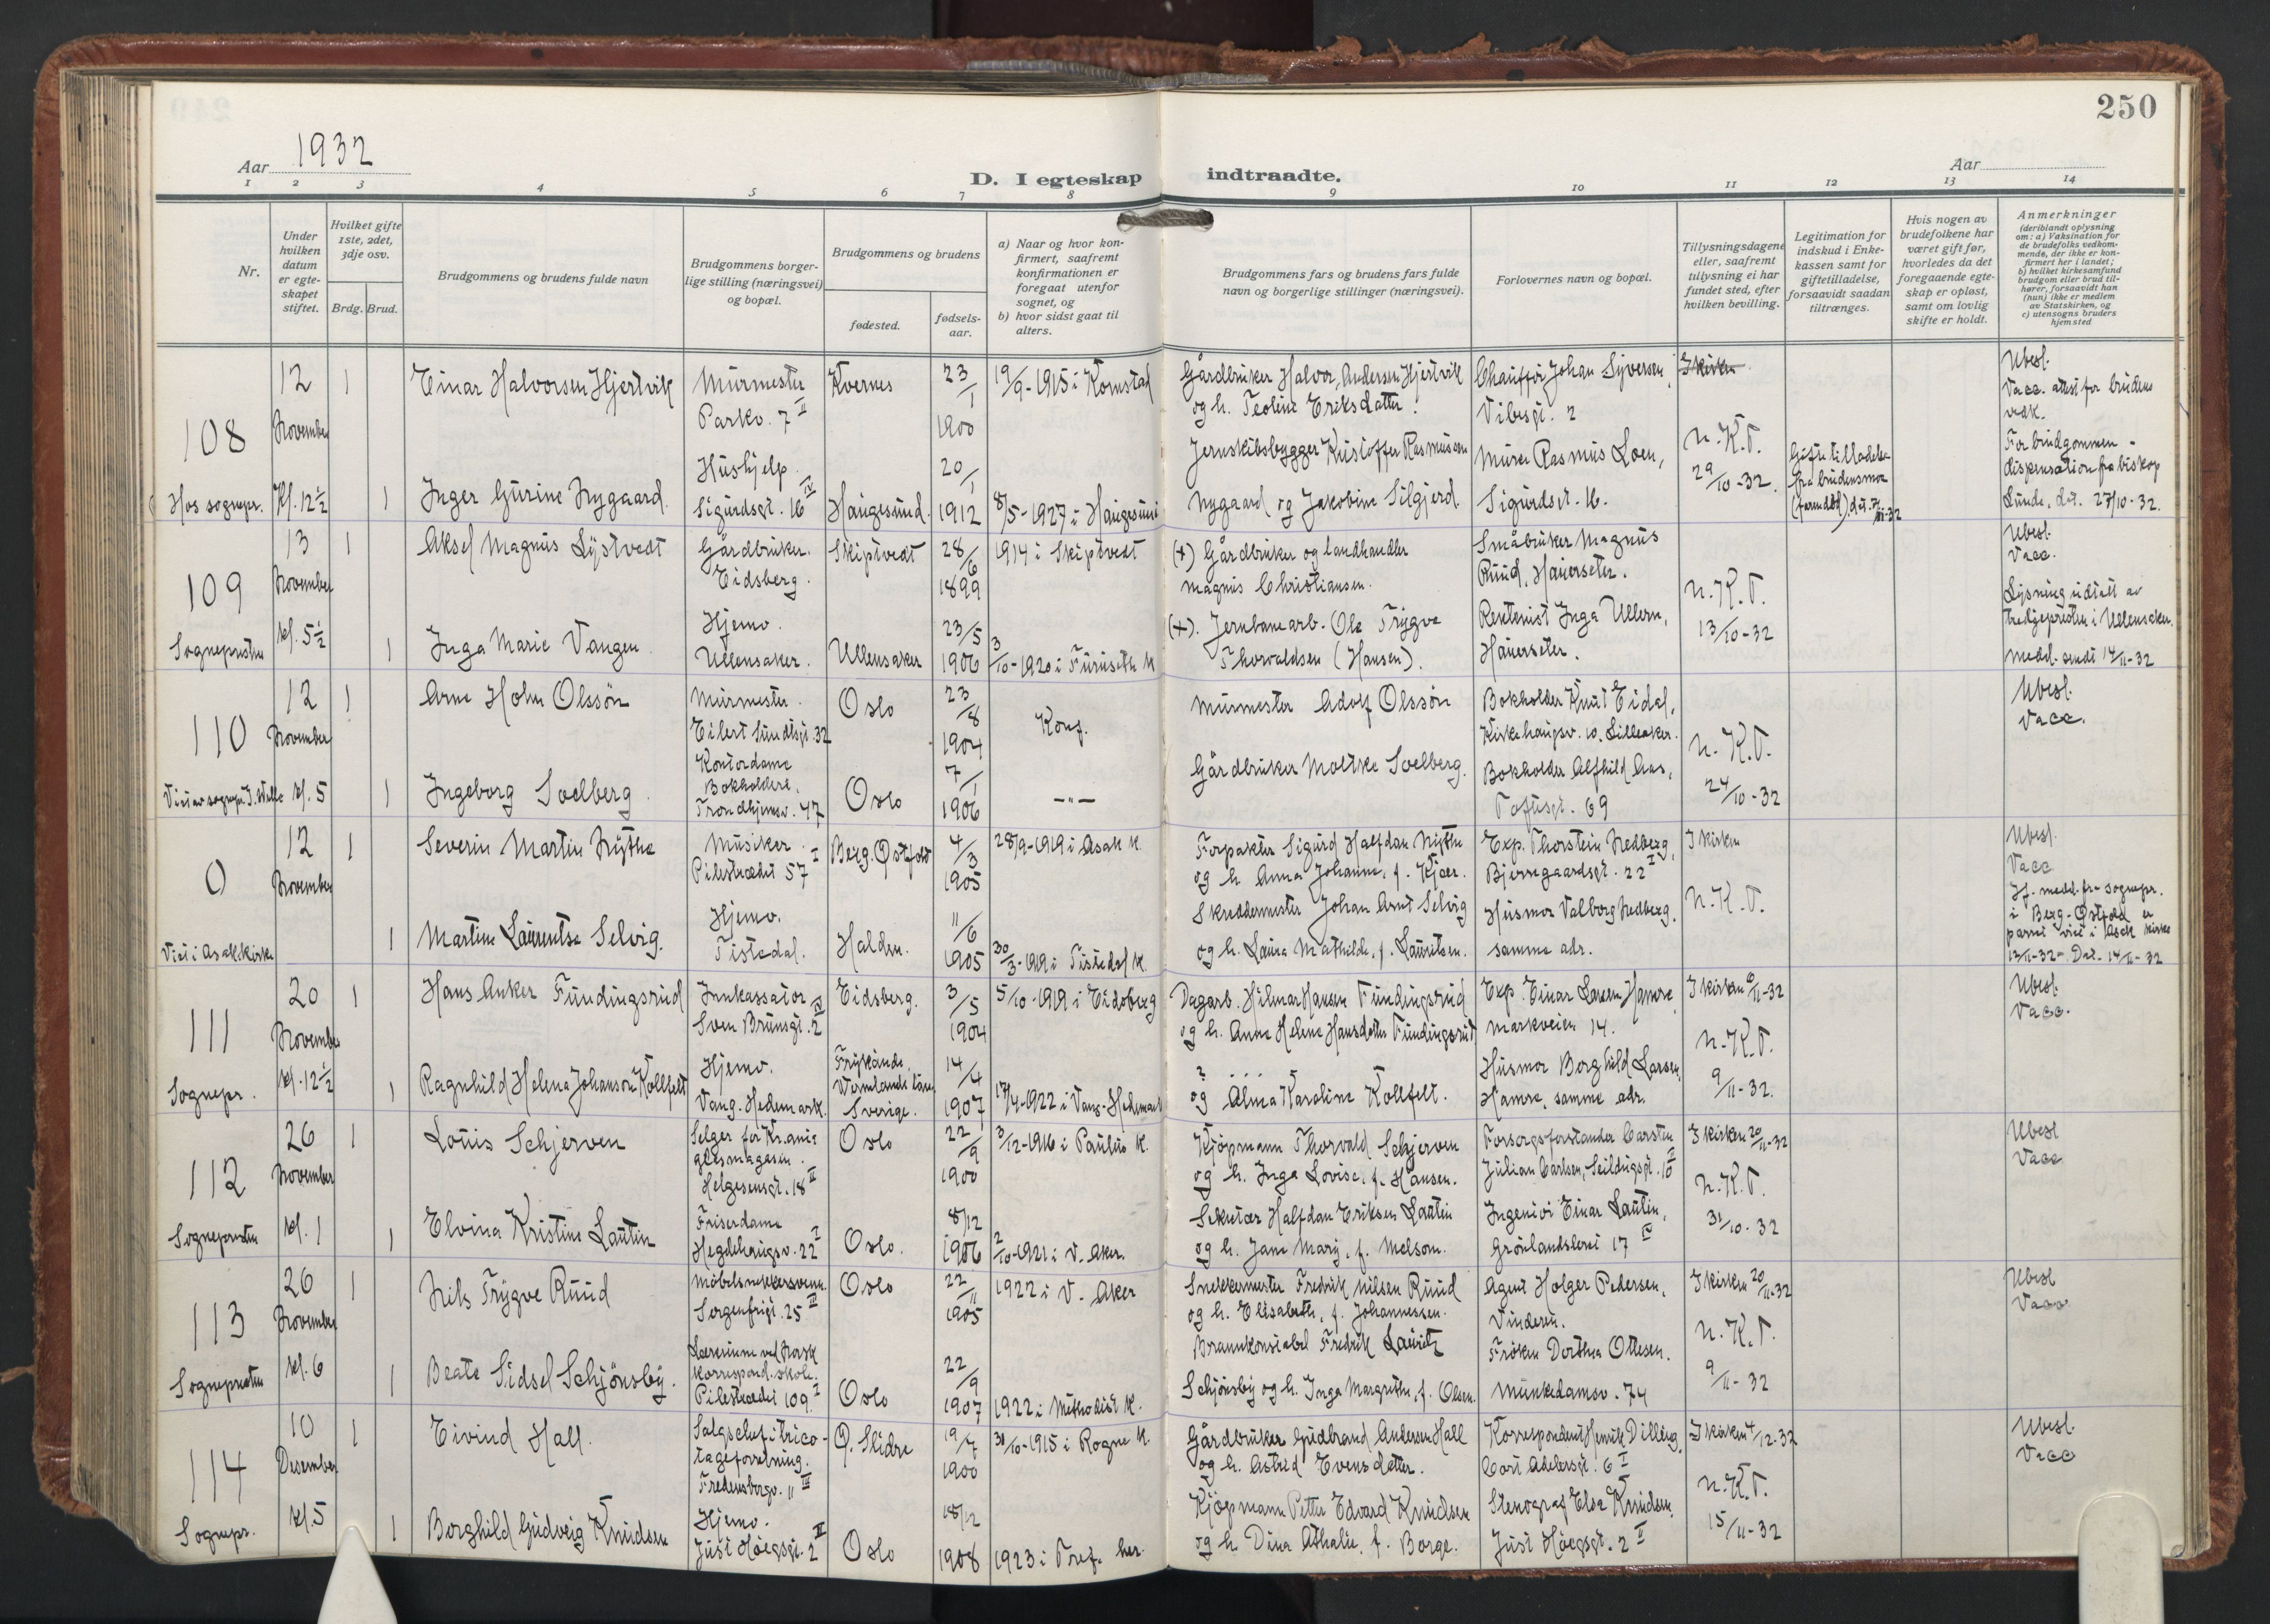 250
Aar 1932
D. I egteskap indtraadte.
Aar
1 2 3 4 5 6 7 8 9 10 11 12 13 14
Nr.
Under hvilken datum er egteskapet stiftet.
Hvilket gifte 1ste, 2det, 3dje osv.
Brdg. Brud.
Brudgommens og brudens fulde navn
Brudgommens borgerlige stilling (næringsvei) og bopæl.
Brudgommens og brudens
fødested.
fødselsaar.
a) Naar og hvor konfirmert, saafremt konfirmationen er foregaat utenfor sognet, og
b) hvor sidst gaat til alters.
Brudgommens fars og brudens fars fulde navn og borgerlige stillinger (næringsvei).
Forlovernes navn og bopæl.
Tillysningsdagene eller, saafremt tillysning ei har fundet sted, efter hvilken bevilling.
Legitimation for indskud i Enkekassen samt for giftetilladelse, forsaavidt saadan tiltrænges.
Hvis nogen av brudefolkene har været gift før, hvorledes da det foregaaende egteskap er opløst, samt om lovlig skifte er holdt.
Anmerkninger (deriblandt oplysning om: a) Vaksination for de brudefolks vedkommende, der ikke er konfirmert her i landet; b) hvilket kirkesamfund brudgom eller brud tilhører, forsaavidt han (hun) ikke er medlem av Statskirken, og c) utensogns bruders hjemsted
108
Hos sognepr.
12 November Kl. 12½
1 Einar Halvorsen Hjertvik
Murmester
Parkv. 7 II
Kvernes
23/1 1900
19/9-1915 i Kornstad
Gårdbruker Halvor Andersen Hjertvik
og h. Teoline Eriksdatter.
Chauffør Johan Syversen,
Vibesgt. 2
I kirken
N.K.T.
29/10-32.
Ubesl.
Vacc. attest for brudens vedk.
For brudgommen - dispensation fra biskop Lunde, dat. 27/10-32.
1 Inger Gurine Nygaard
Hushjelp.
Sigurdsgt. 16 IV
Haugesund.
20/1 1912
8/5-1927 i Haugesund
Jernskibsbygger Kristoffer Rasmussen
Nygaard og Jakobine Silgjerd.
Murer Rasmus Loen,
Sigurdsgt. 16.
Giftetilladelse fra brudens mor
109
Sognepresten
13 November kl. 5½
1 Aksel Magnus Lystvedt
Gårdbruker.
Eidsberg.
Skiptvedt
28/6 1899
1914 i Skiptvedt
(+) Gårdbruker og landhandler
Magnus Christiansen.
Småbruker Magnus
Ruud, Hauerseter.
N.K.T.
13/10-32
Ubesl.
Vacc.
Lysning udtatt av
tredjepresten i Ullensaker.
Medd. sendt 14/11-32
1 Inga Marie Vangen
Hjemv.
Ullensaker.
Ullensaker
23/5 1906
3/10-1920 i Furuseth K
(+). Jernbanearb. Ole Trygve
Thorvaldsen (Hansen).
Rentenist Inga Ullern,
Hauerseter.
110
Viet av sognepr. J. Welle
12 November kl. 5
1 Arne Holm Olssøn
Murmester.
Eilert Sundtsgt. 32
Oslo
23/8 1904
Konf.
Murmester Adolf Olssøn
Bokholder Knut Eidal,
Kirkehaugsv. 10. Lilleaker.
N.K.T.
24/10-32
Ubesl.
Vacc.
1 Ingeborg Soelberg
Kontordame
Bokholderi,
Trondhjemsv. 47
Oslo
7/1 1906
-"-
Gårdbruker Moltke Soelberg.
Bokholder Alfhild Aas,
Toftesgt. 69
0
Viet i Asak kirke
12 November
1 Severin Martin Nythe
Musiker
Pilestrædet 57 I
Berg. Østfold
4/3 1905
28/9-1919 i Asak K.
Forpakter Sigurd Halfdan Nythe
og h. Anna Johanne, f. Kjær.
Exp. Thorstein Nedberg,
Bjerregaardsgt. 22 I
I kirken
N.K.T.
Ubesl.
Vacc
If. medd. fra sognepr.
i Berg-Østfold er
parret viet i Asak kirke
12/11-32. Dat. 14/11-32
1 Martine Laurentse Selvig.
Hjemv.
Tistedal.
Halden.
11/6 1905
30/3-1919 i Tistedal K.
Skreddermester Johan Arnt Selvig
og h. Laura Mathilde, f. Lauritsen.
Husmor Valborg Nedberg,
samme adr.
111
Sognepr.
20 November kl. 12½
1 Hans Anker Fundingsrud
Innkassator
Sven Brunsgt. 2 IV
Eidsberg.
3/5 1904
5/10-1919 i Eidsberg
Dagarb. Hilmar Hansen Fundingsrud
og h. Anne Helene Hansdatter Fundingsrud
Exp. Einar Larsen Hamre,
Markveien 14.
I kirken 6/11-32
N.K.T.
9/11-32.
Ubesl.
Vacc.
1 Ragnhild Helena Johanson Kollfelt
Hjemv.
Vang. Hedemark.
Frykände
Wermlands län
Sverige.
14/4 1907
17/4-1922 i Vang-Hedemark
? ...
og Alma Karoline Kollfelt.
Husmor Borghild Larsen
Hamre, samme adr.
112
Sognepresten
26 November kl. 1
1 Louis Schjerven
Selger for Kr.ania
glasmagasin.
Helgesensgt. 18 II
Oslo
22/9 1900
3/12-1916 i Paulus K.
Kjøpmann Thorvald Schjerven
og h. Inga Lovise, f. Hansen.
Forsorgsforstander Carsten
Julian Carlsen, Seildugsgt. 10 I
I kirken 20/11-32
N.K.T.
31/10-32
Ubesl
Vacc
1 Elvina Kristine Lautin
Friserdame
Hegdehaugsv. 22 I
Oslo.
8/12 1906
2/10-1921 i V. Aker.
Sekretær Halfdan Eriksen Lautin
og h. Jane Mary, f. Melsom.
Ingeniør Einar Lautin,
Grønlandsleret 17 IV
113
Sognepresten
26 November kl. 6
1 Nils Trygve Ruud
Møbelsnekkersvenn.
Sorgenfrigt. 25 III
Oslo
22/11 1905
1922 i V. Aker
Snekkermester Fredrik Nilsen Ruud
og h. Elisabeth, f. Johannessen.
Agent Holger Pedersen,
Vinderen.
I kirken 20/11-32
N.K.T.
9/11-32
Ubesl
Vacc
1 Beate Sidsel Schjønsby.
Lærerinne ved Norsk
korrespond. skole.
Pilestrædet 109 I
Oslo
22/9 1907
1922 i Methodist K.
Brannkonstabel Fredrik Lauritz
Schjønsby og h. Inga Margrethe, f. Olsen.
Frøken Dorthea Ottesen.
Munkedamsv. 74
114
Sognepr.
10 Desember kl. 5
1 Eivind Hall.
Salgschef i trico-
tageforretning.
Fredensborgv. 11 III
Ø. Slidre
19/7 1900
31/10-1915 i Rogne K.
Gårdbruker Gudbrand Andersen Hall
og h. Astrid Evensdatter.
Korrespondent Henrik Dilling,
Cort Adelersgt. 6 I
I kirken 4/12-32
N.K.T.
15/11-32
Ubesl.
Vacc
1 Borghild Gudveig Knudsen
Hjemv.
Just Høegsgt. 2 II
Oslo
18/12 1908
1923 i Tref. her.
Kjøpmann Petter Edvard Knudsen
og h. Dina Athalie, f. Borge.
Stenograf Elsa Knudsen,
Just Høegsgt. 2 II